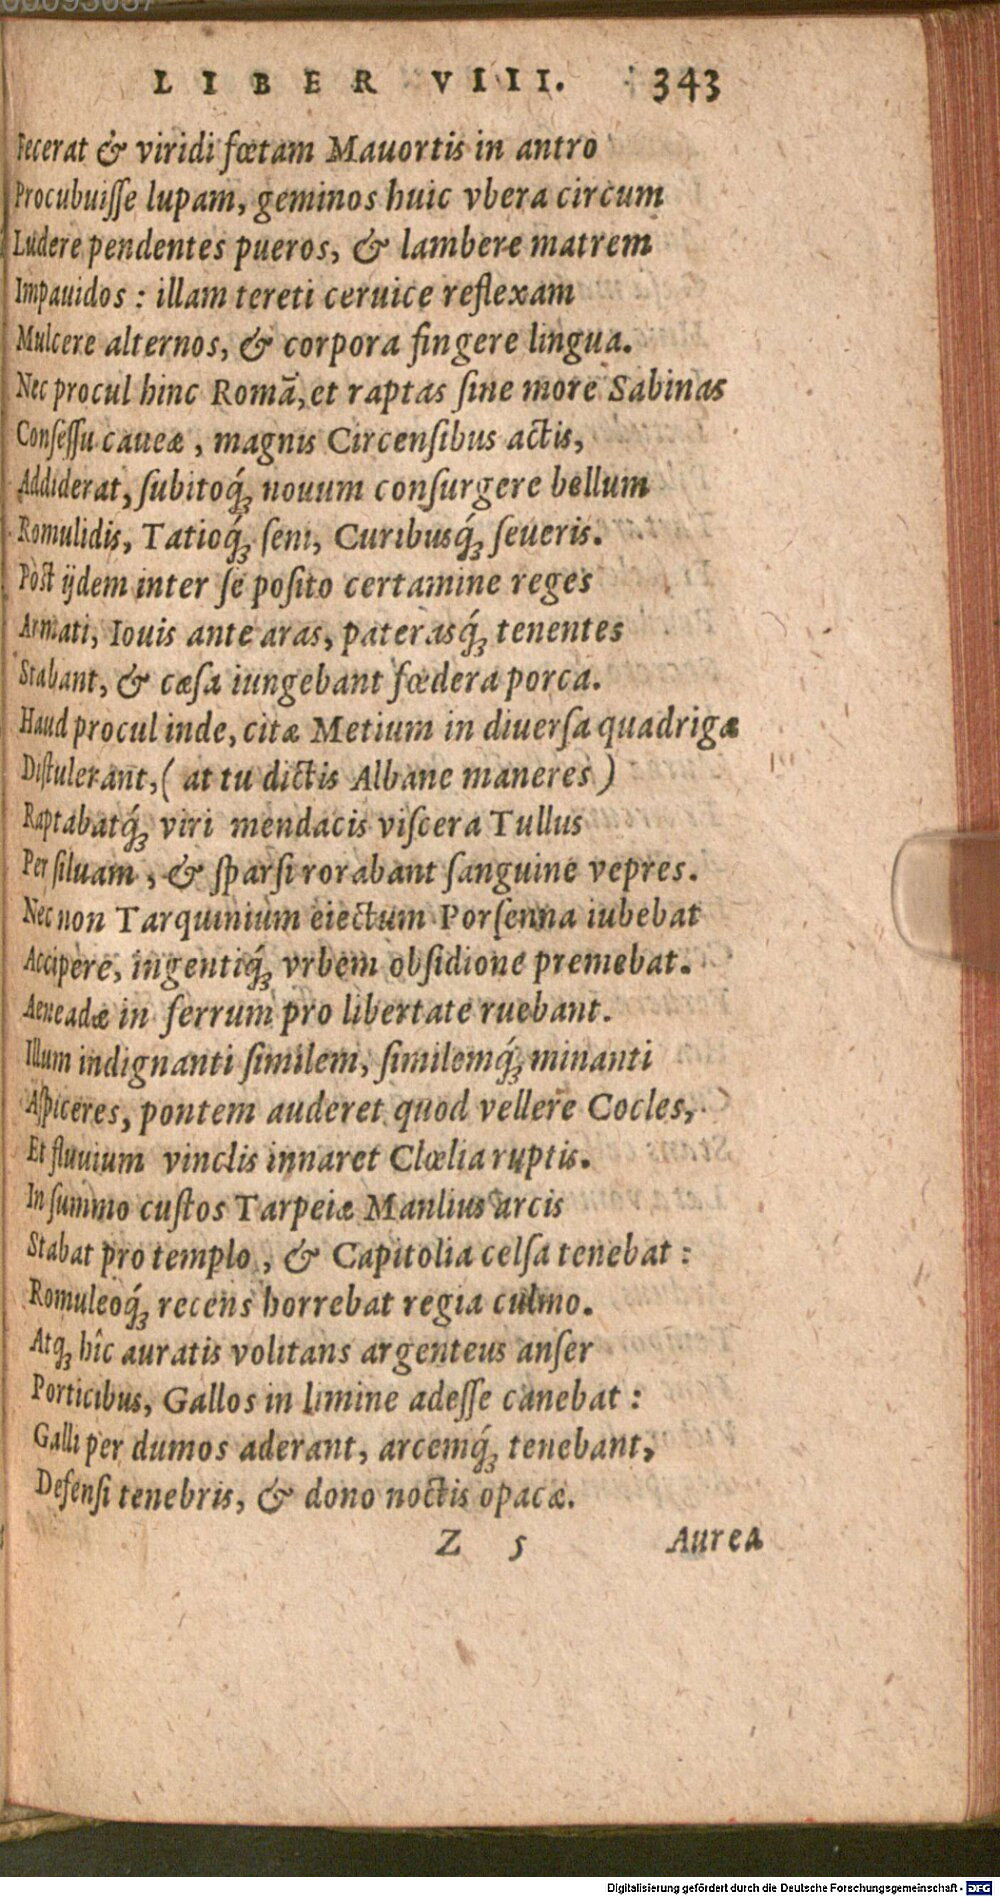 LIBER VIII. 343
Fecerat & viridi fœtam Mauortis in antro
Procubuiſſe lupam, geminos huic vbera circum
Ludere pendentes pueros, & lambere matrem
Impauidos : illam tereti ceruice reflexam
Mulcere alternos, & corpora fingere lingua.
Nec procul hinc Romã, et raptas ſine more Sabinas
Conſeſſu caueæ , magnis Circenſibus actis,
Addiderat, ſubitoq́ꝫ nouum conſurgere bellum
Romulidis, Tatioq́ꝫ ſeni, Curibusq́ꝫ ſeueris.
Pòst ijdem inter ſe poſito certamine reges
Armati, Iouis ante aras, paterasq́ꝫ tenentes
Stabant, & cæſa iungebant fœdera porca.
Haud procul inde, citæ Metium in diuerſa quadrigæ
Diſtulerant, ( at tu dictis Albane maneres )
Raptabatq́ꝫ viri mendacis viſcera Tullus
Per ſiluam , & ſparſi rorabant ſanguine vepres.
Nec non Tarquinium eiectum Porſenna iubebat
Accipere, ingentiq́ꝫ vrbem obſidione premebat.
Aeneadæ in ferrum pro libertate ruebant.
Illum indignanti ſimilem, ſimilemq́ꝫ minanti
Aſpiceres, pontem auderet quod vellere Cocles,
Et fluuium vinclis innaret Clœlia ruptis.
In ſummo cuſtos Tarpeiæ Manlius arcis
Stabat pro templo , & Capitolia celſa tenebat :
Romuleoq́ꝫ recens horrebat regia culmo.
Atqꝫ hîc auratis volitans argenteus anſer
Porticibus, Gallos in limine adeſſe canebat :
Galli per dumos aderant, arcemq́ꝫ tenebant,
Defenſi tenebris, & dono noctis opacæ.
Z 5 Aurea
Digitalisierung gefördert durch die Deutsche Forschungsgemeinschaft - DFG